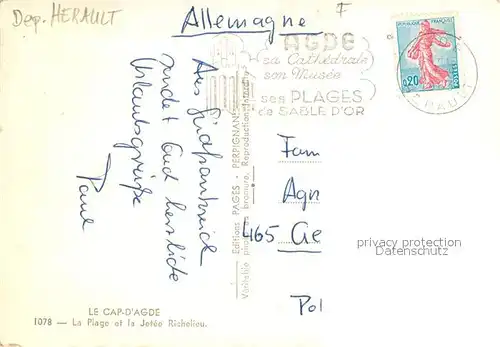 Dep. HERAULT
Allemagne
F
AGDE
sa Cathédrale
son Musée
ses PLAGES
de SABLE D'OR
REPUBLIQUE FRANÇAISE
0,20
POSTES
HERAULT
Aus Südfrankreich
sendet Euch herzliche
Urlaubsgrüße
Paul
Editions PAGES - PERPIGNAN
Véritable photo au bromure, Reproduction interdite
Fam
Agn
465 Ge
Pol
privacy protection
Datenschutz
LE CAP-D'AGDE
1078 — La Plage et la Jetée Richelieu.